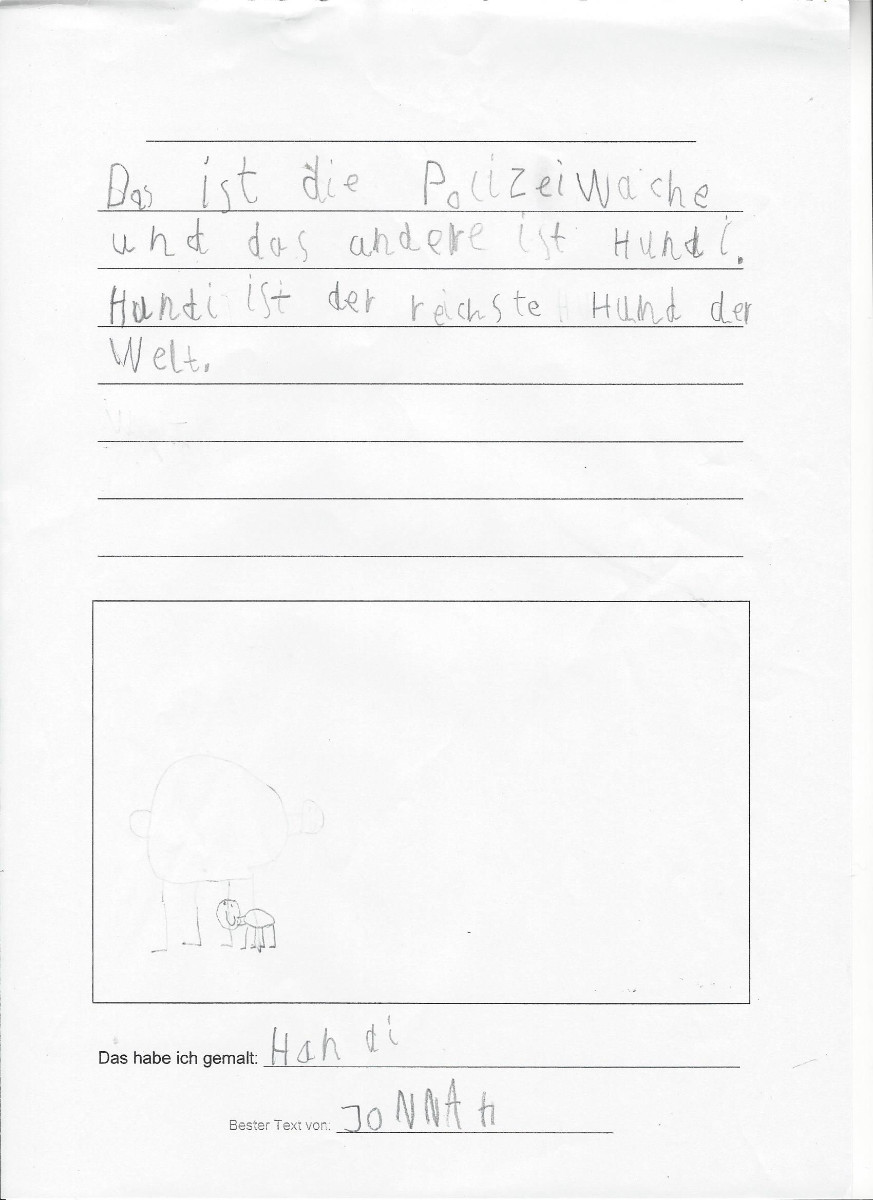 Das ist die Polizeiwache
und das andere ist Hundi.
Hundi ist der reichste Hund der
Welt.
Das habe ich gemalt: Handi
Bester Text von: JONNAh